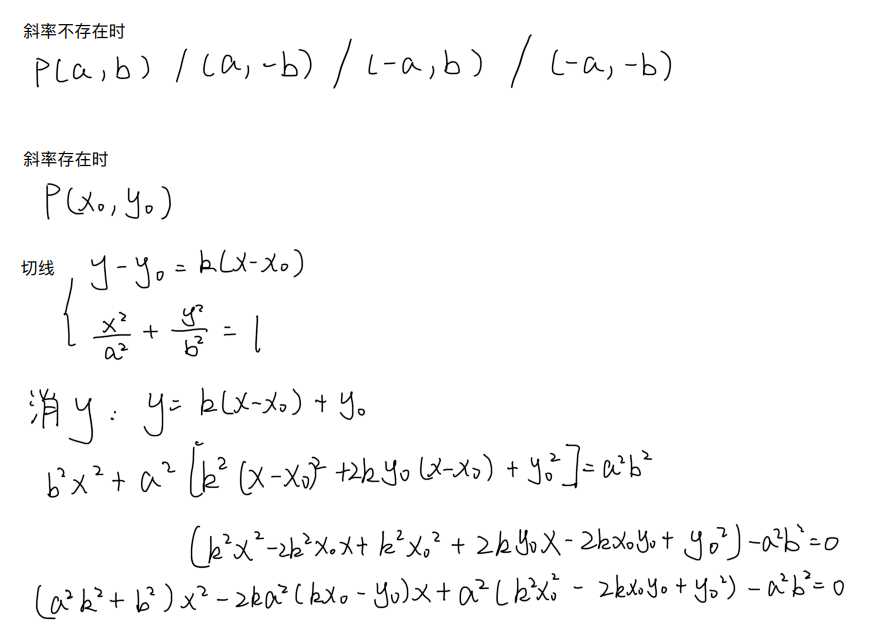 斜率不存在时
P(a,b) / (a,-b) / (-a,b) / (-a,-b)
斜率存在时
P(x₀,y₀)
切线 { y-y₀=k(x-x₀)
x²/a² + y²/b² = 1
消y: y=k(x-x₀)+y₀
b²x²+a²[k²(x-x₀)²+2ky₀(x-x₀)+y₀²]=a²b²
(k²x²-2k²x₀x+k²x₀²+2ky₀x-2kx₀y₀+y₀²)-a²b²=0
(a²k²+b²)x²-2ka²(kx₀-y₀)x+a²(k²x₀²-2kx₀y₀+y₀²)-a²b²=0